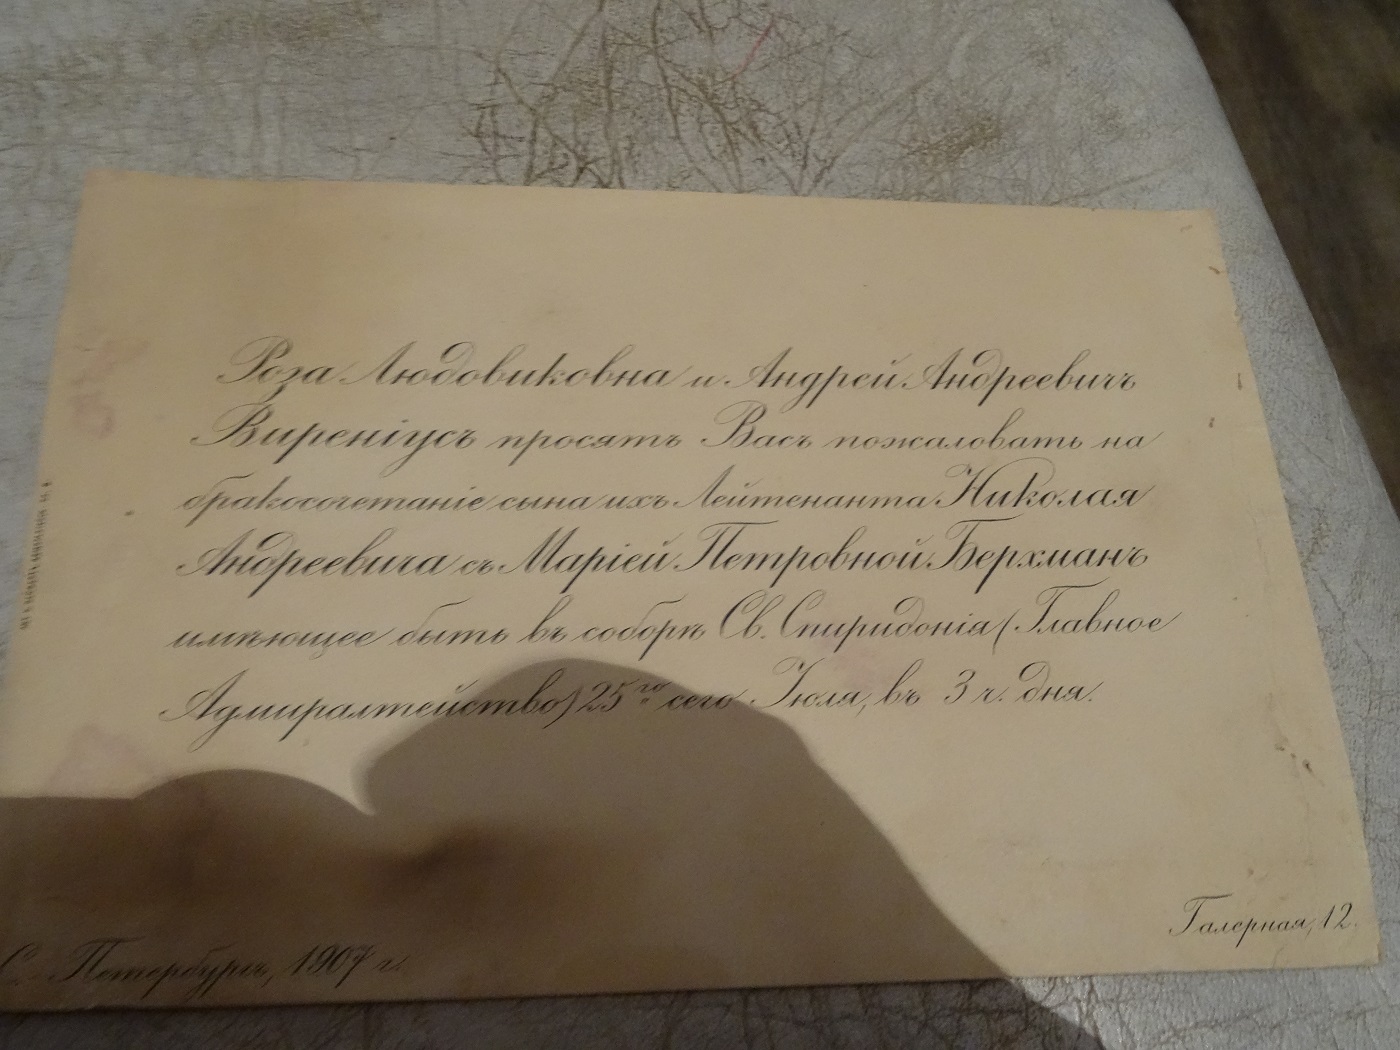 Роза Людовиковна и Андрей Андреевичъ
Виреніусъ просятъ Васъ пожаловать на
бракосочетаніе сына ихъ Лейтенанта Николая
Андреевича съ Маріей Петровной Берхманъ
имѣющее быть въ соборѣ Св. Спиридонія (Главное
Адмиралтейство) 25го сего Іюля, въ 3 ч. дня.
Галерная, 12.
С.-Петербургъ, 1907 г.